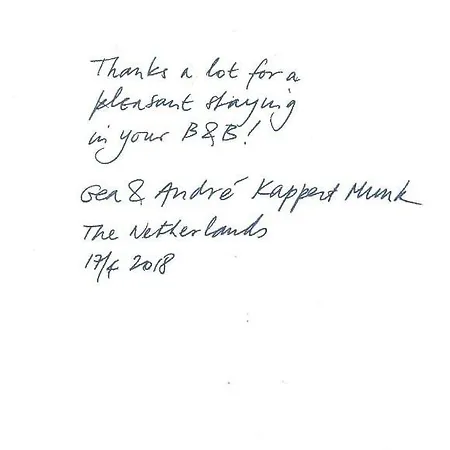 Thanks a lot for a
pleasant staying
in your B&B!
Gea & André Kappert Munk
The Netherlands
17/4 2018